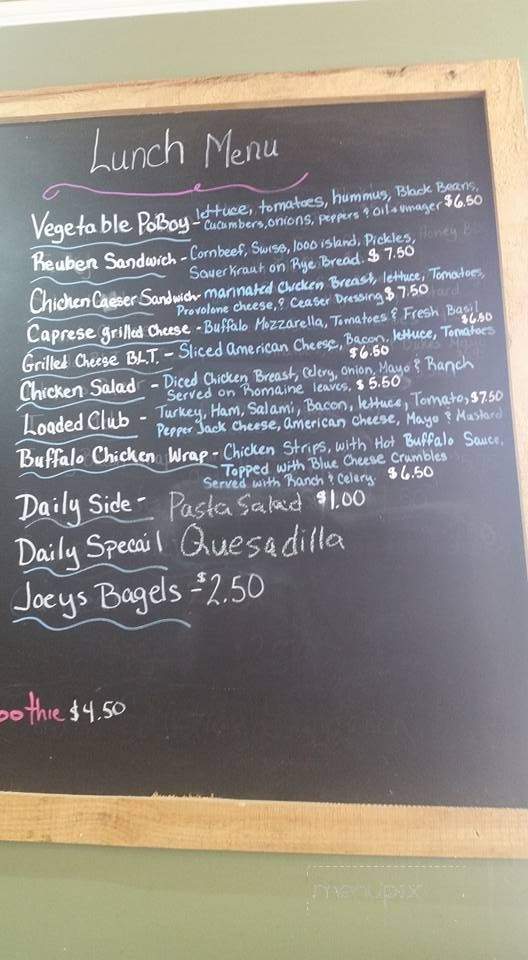 Lunch Menu
Vegetable PoBoy - lettuce, tomatoes, hummus, Black Beans,
Cucumbers, onions, peppers & oil + vinager $6.50
Reuben Sandwich - Cornbeef, Swiss, 1000 island, Pickles,
Sauerkraut on Rye Bread. $7.50
Chicken Caeser Sandwich - marinated Chicken Breast, lettuce, Tomatoes,
Provolone cheese, & Ceaser Dressing $7.50
Caprese grilled Cheese - Buffalo Mozzarella, Tomatoes & Fresh Basil
$6.50
Grilled Cheese B.L.T. - Sliced American Cheese, Bacon, lettuce, Tomatoes
$6.50
Chicken Salad - Diced Chicken Breast, Celery, Onion, Mayo & Ranch
Served on Romaine leaves. $5.50
Loaded Club - Turkey, Ham, Salami, Bacon, lettuce, Tomato, $7.50
Pepper Jack Cheese, American cheese, Mayo & Mustard
Buffalo Chicken Wrap - Chicken Strips, with Hot Buffalo Sauce,
Topped with Blue Cheese Crumbles
Served with Ranch & Celery. $6.50
Daily Side - Pasta Salad $1.00
Daily Specail Quesadilla
Joeys Bagels - $2.50
oothie $4.50
menupix